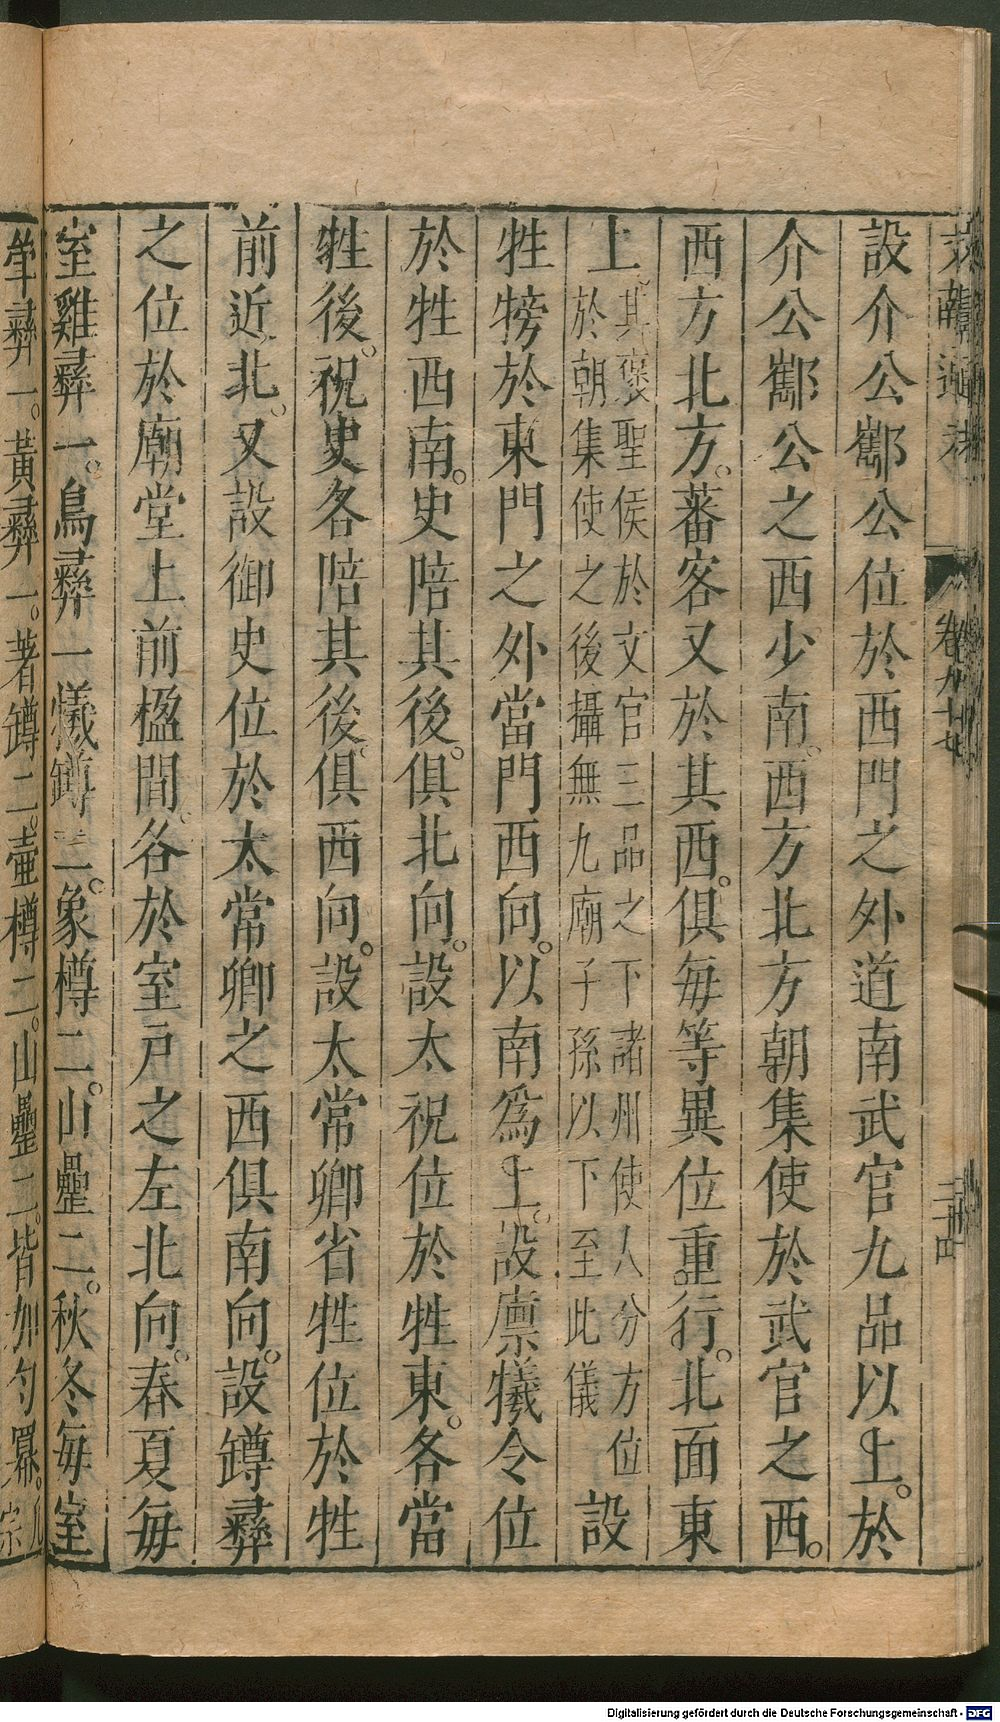 卷九十七
二十四
設介公酅公位於西門之外道南武官九品以上。於
介公酅公之西少南。西方北方朝集使於武官之西。
西方北方。蕃客又於其西。俱每等異位重行。北面東
上。其褒聖侯於文官三品之下諸州使人分方位
於朝集使之後攝無九廟子孫以下至此儀
設
牲牓於東門之外當門西向。以南為上。設廩犧令位
於牲西南。史陪其後。俱北向。設太祝位於牲東。各當
牲後。祝史各陪其後。俱西向。設太常卿省牲位於牲
前近北。又設御史位於太常卿之西俱南向。設罇彝
之位於廟堂上前楹間。各於室戶之左北向。春夏每
室雞彝一。鳥彝一犧罇二。象樽二。山罍二。秋冬每室
斝彝一。黃彝一。著罇二。壺樽二。山罍二。皆加勺冪。
Digitalisierung gefördert durch die Deutsche Forschungsgemeinschaft - DFG